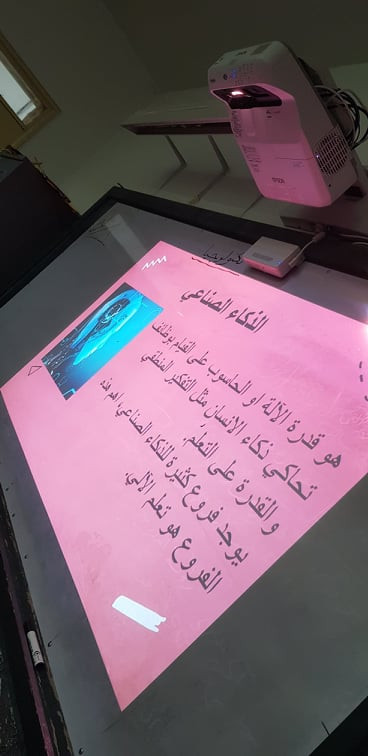 تكنولوجيا
الذكاء الصناعي
هو قدرة الآلة او الحاسوب على القيام بوظائف
تحاكي ذكاء الانسان مثل التفكير المنطقي
والقدرة على التعلم،
يوجد فروع كثيرة للذكاء الصناعي، اهم هذه
الفروع هو تعلم الآلي
EPSON